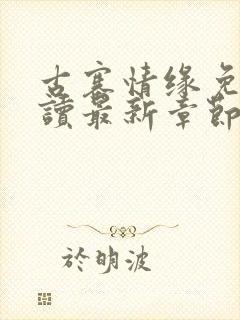 古寨情缘免
讀最新章節
於明波